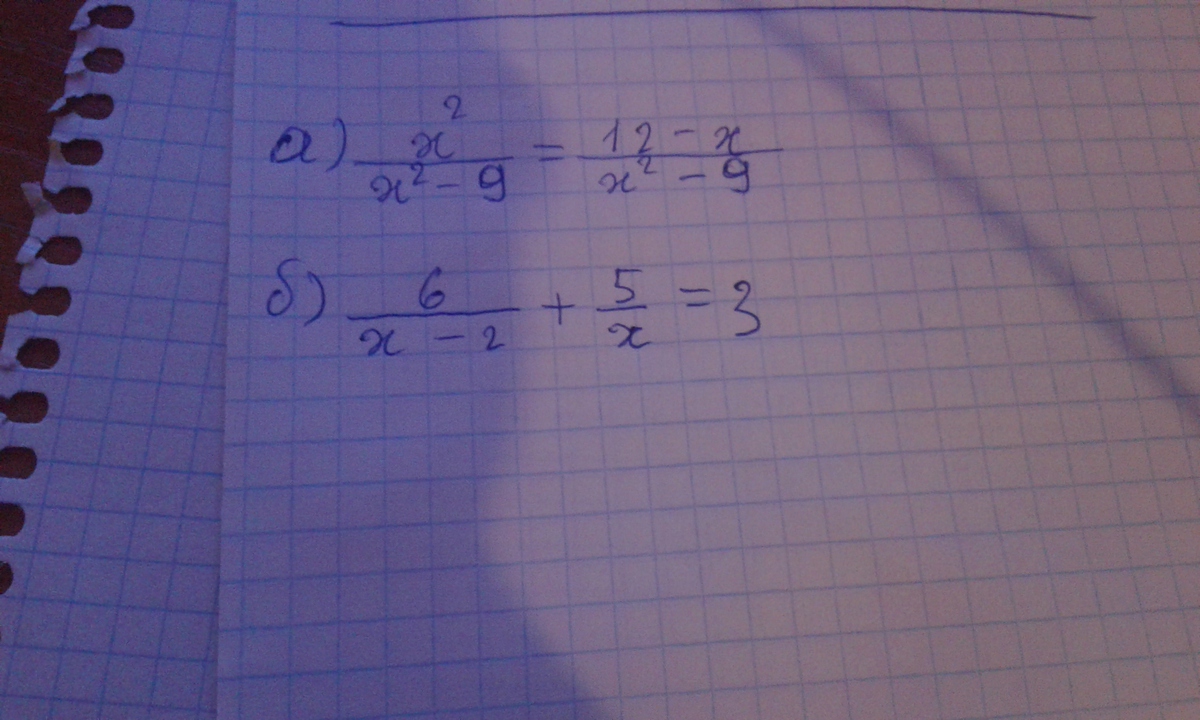 а) x²/(x² - 9) = (12 - x)/(x² - 9)
б) 6/(x - 2) + 5/x = 3